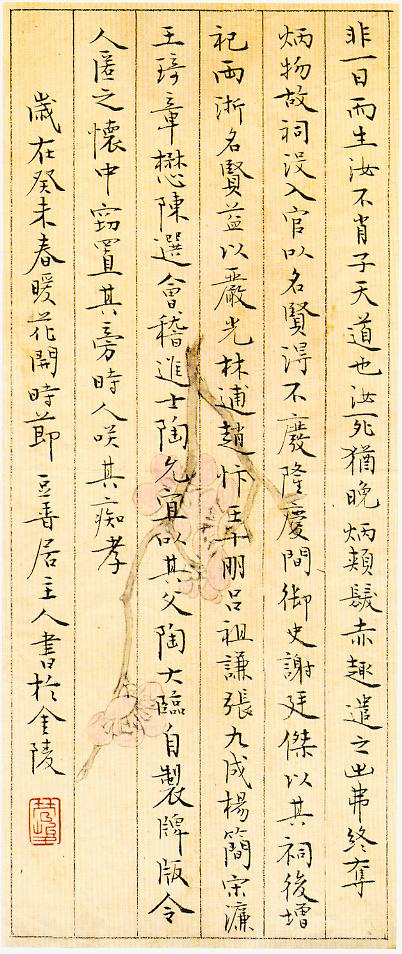 非一日而生汝不肖子天道也汝死猶晚炳頰發赤趣遣之出弗終奪
炳物故祠沒入官以名賢得不廢隆慶間御史謝廷傑以其祠後增
祀兩浙名賢益以嚴光林逋趙忭王十朋呂祖謙張九成楊簡宋濂
王琦章懋陳選會稽進士陶允宜以其父陶大臨自製牌版令
人匿之懷中竊置其旁時人咲其痴孝
歲在癸未春暖花開時節 豆香居主人書於金陵